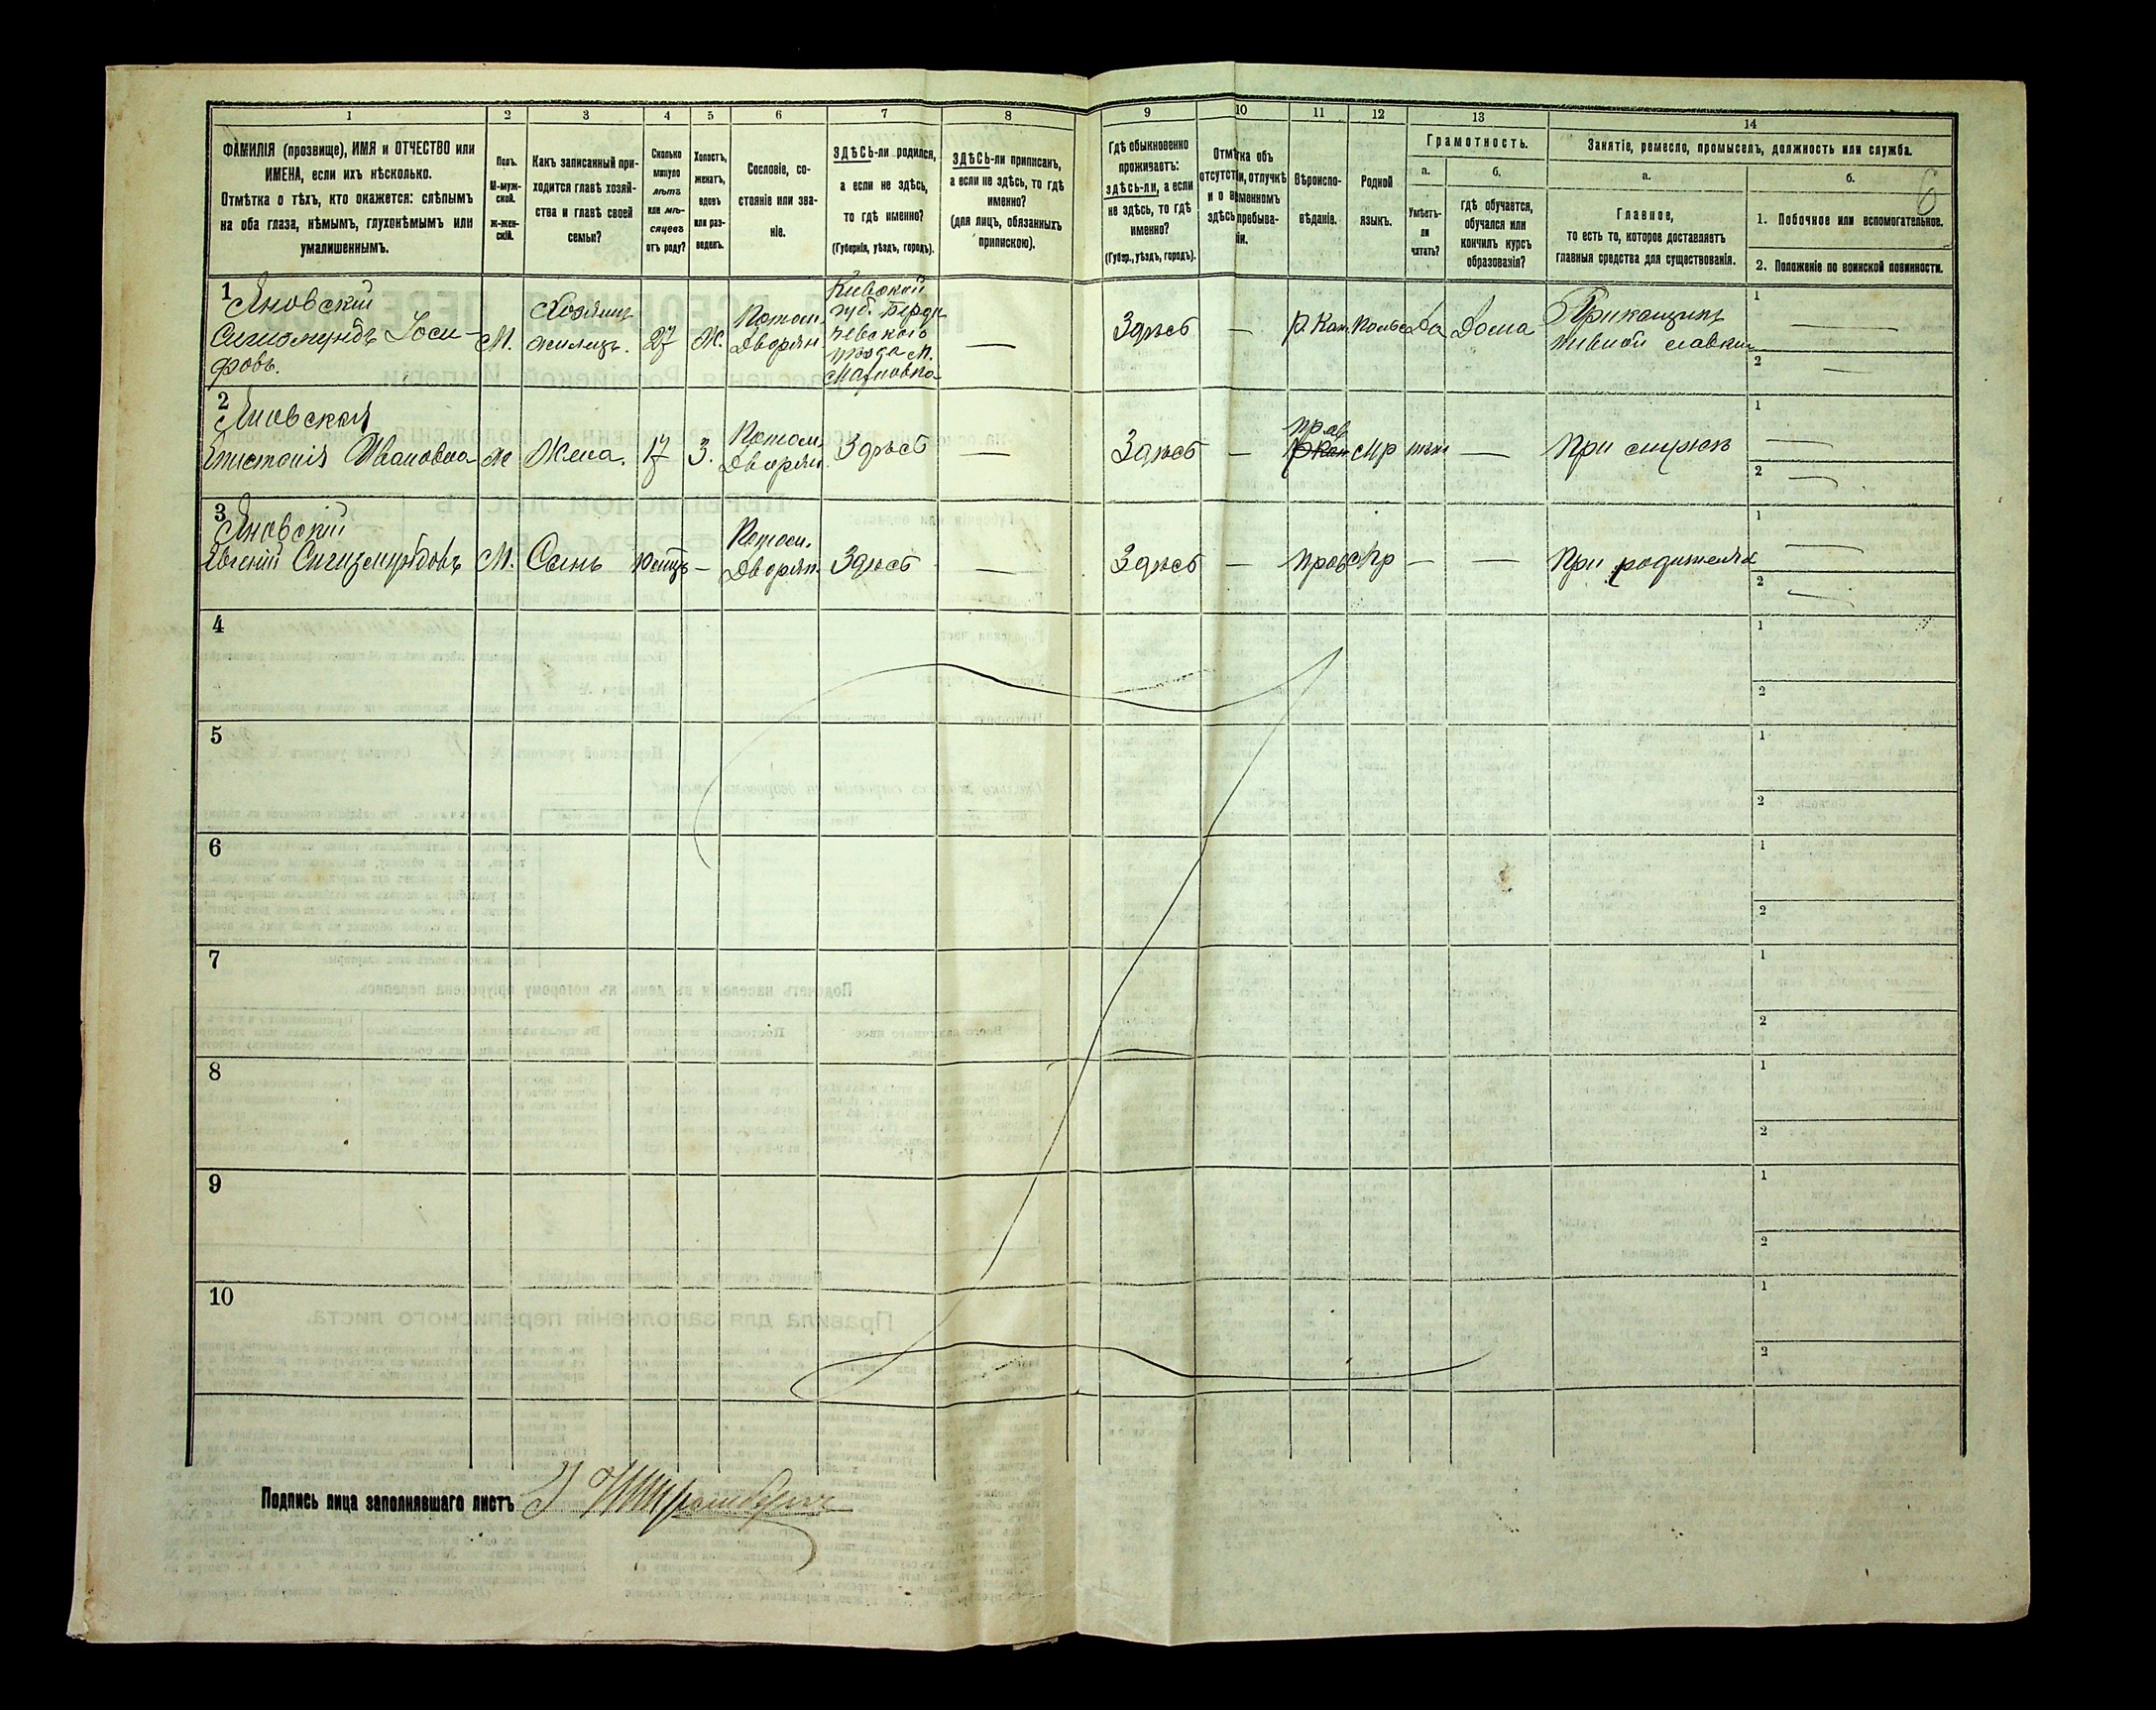 1 2 3 4 5 6 7 8 9 10 11 12 13 14
ФАМИЛІЯ (прозвище), ИМЯ и ОТЧЕСТВО или
ИМЕНА, если ихъ нѣсколько.
Отмѣтка о тѣхъ, кто окажется: слѣпымъ
на оба глаза, нѣмымъ, глухонѣмымъ или
умалишеннымъ.
Полъ.
М-муж-
ской.
Ж-жен-
скій.
Какъ записанный при-
ходится главѣ хозяй-
ства и главѣ своей
семьи?
Сколько
минуло
лѣтъ
или мѣ-
сяцевъ
отъ роду?
Холостъ,
женатъ,
вдовъ
или раз-
веденъ.
Сословіе, со-
стояніе или зва-
ніе.
ЗДѢСЬ-ли родился,
а если не здѣсь,
то гдѣ именно?
(Губернія, уѣздъ, городъ).
ЗДѢСЬ-ли приписанъ,
а если не здѣсь, то гдѣ
именно?
(для лицъ, обязанныхъ
припискою).
Гдѣ обыкновенно
проживаетъ:
здѣсь-ли, а если
не здѣсь, то гдѣ
именно?
(Губер., уѣздъ, городъ).
Отмѣтка объ
отсутствіи, отлучкѣ
и о временномъ
здѣсь пребыва-
ніи.
Вѣроиспо-
вѣданіе.
Родной
языкъ.
Грамотность.
а.
Умѣетъ-
ли
читать?
б.
гдѣ обучается,
обучался или
кончилъ курсъ
образованія?
Занятіе, ремесло, промыселъ, должность или служба.
а.
Главное,
то есть то, которое доставляетъ
главныя средства для существованія.
б.
6
1. Побочное или вспомогательное.
2. Положеніе по воинской повинности.
1
Яновскій
Сигизмундъ Іоси-
фовъ.
М.
Хозяинъ
жилецъ.
27
Ж.
Потом.
Дворян
Кіевской
губ. Берди
чевского
уѣзда М.
Махновка
—
Здѣсь
—
Р. Кат.
Польс
Да
Дома
Прикащикъ
пивной лавки
1 —
2 —
2
Яновская
Ивановна
Ж
Жена.
17
З.
Потом.
Дворян.
Здѣсь
—
Здѣсь
—
прав
Р Кат
Мр
нѣтъ
—
При мужѣ
1 —
2 —
3
Яновскій
Евгеній Сигизмундовъ
М.
Сынъ
—
Потом.
Дворян.
Здѣсь
—
Здѣсь
—
прав
Мр
—
—
При родителях
1 —
2 —
4
1
2
5
1
2
6
1
2
7
1
2
8
1
2
9
1
2
10
1
2
Подпись лица заполнявшаго листъ